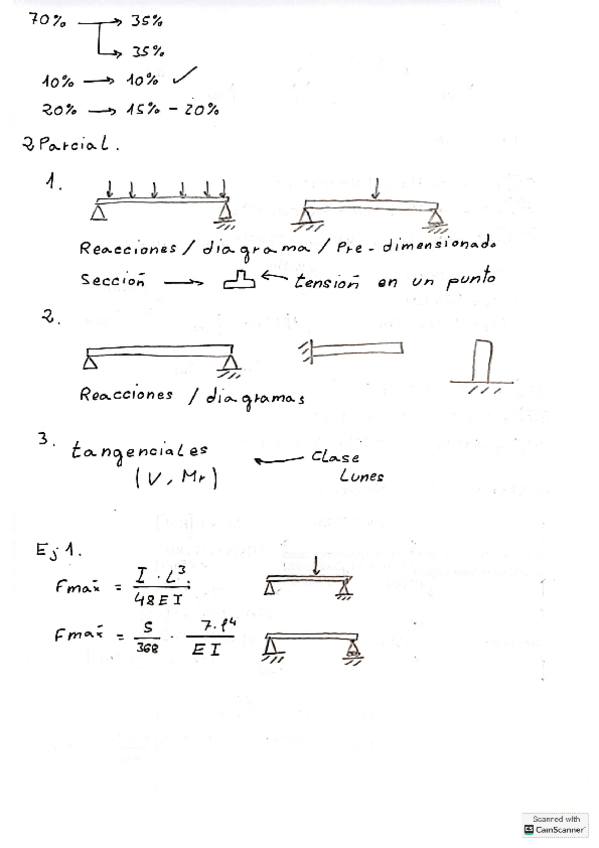 70% → 35%
→ 35%
10% → 10% ✓
20% → 15% - 20%
2 Parcial.
1.
Reacciones / diagrama / Pre-dimensionado
Sección → ← tensión en un punto
2.
Reacciones / diagramas
3. tangenciales ← Clase
(V, Mr) Lunes
Ej 1.
Fmax = I · L³ / 48EI
Fmax = 5 / 368 · 7.l⁴ / EI
Scanned with
CamScanner